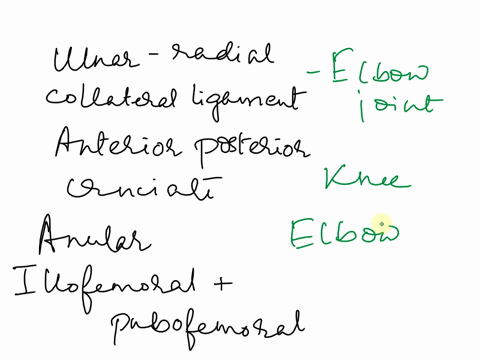 Ulnar - radial
collateral ligament
- Elbow
joint
Anterior posterior
cruciate
Knee
Anular
Elbow
Iliofemoral +
pubofemoral